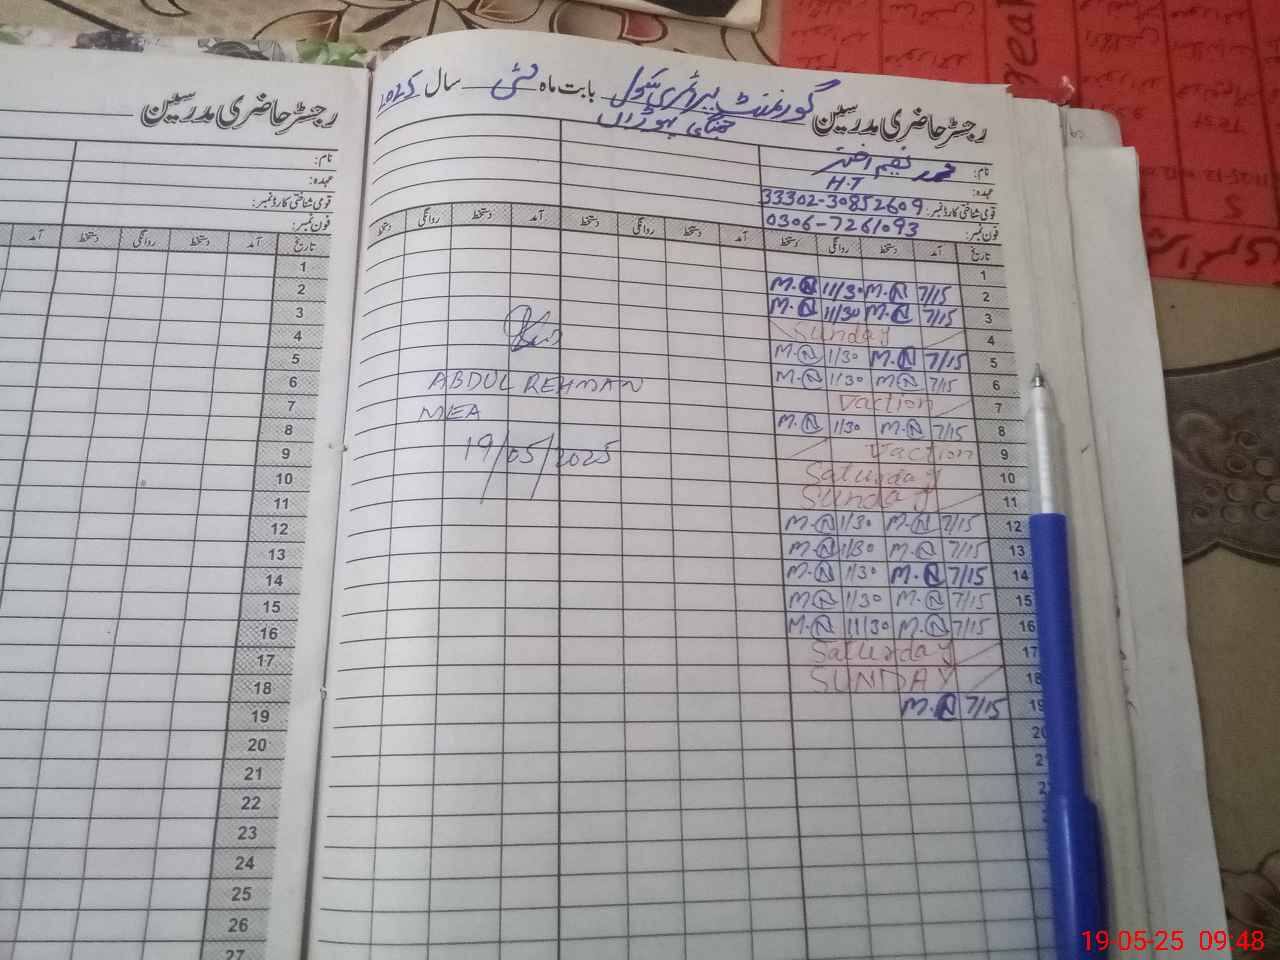 رجسٹر حاضری مدرسین گورنمنٹ پرائمری سکول بابت ماہ مئی سال 2025
نام: محمد نعیم اختر
عہدہ: H.T
قومی شناختی کارڈ نمبر: 33302-30852609
فون نمبر: 0306-7261093
تاریخ آمد دستخط روانگی دستخط آمد دستخط روانگی دستخط آمد دستخط روانگی دستخط
1
2 7/15 M.N 11/30 M.N
3 7/15 M.N 11/30 M.N
4 Sunday
5 7/15 M.N 1/30 M.N
6 7/15 M.N 1/30 M.N
7 Vaction
8 7/15 M.N 1/30 M.N
9 Vaction
10 Saturday
11 Sunday
12 7/15 M.N 1/30 M.N
13 7/15 M.N 1/30 M.N
14 7/15 M.N 1/30 M.N
15 7/15 M.N 1/30 M.N
16 7/15 M.N 11/30 M.N
17 Saturday
18 SUNDAY
19 7/15 M.N
20
ABDUL REHMAN
MEA
19/05/2025
رجسٹر حاضری مدرسین
نام:
عہدہ:
قومی شناختی کارڈ نمبر:
فون نمبر:
تاریخ آمد دستخط روانگی دستخط آمد
1
2
3
4
5
6
7
8
9
10
11
12
13
14
15
16
17
18
19
20
21
22
23
24
25
26
27
19-05-25 09:48